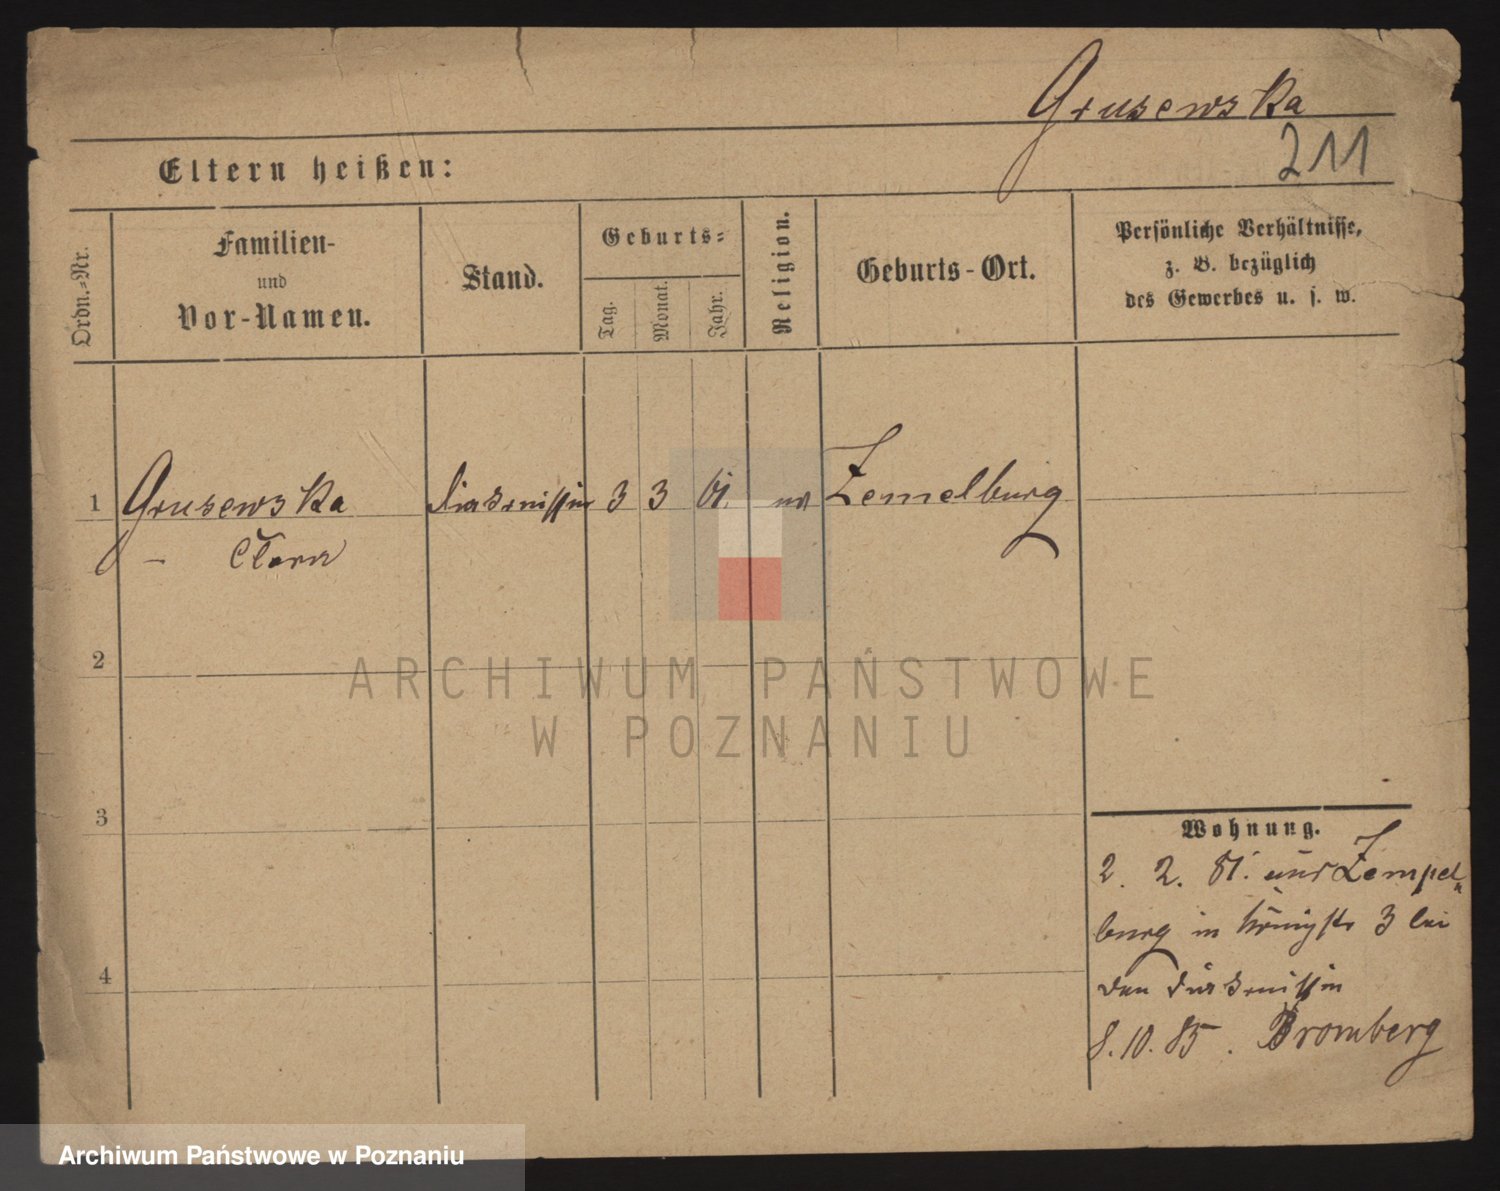 Grusewska
211
Eltern heißen:
Ordn.-Nr.
Familien-
und
Vor-Namen.
Stand.
Geburts-
Tag.
Monat.
Jahr.
Religion.
Geburts-Ort.
Persönliche Verhältnisse,
z. B. bezüglich
des Gewerbes u. s. w.
1 Grusewska Diakonissin 3 3 61. Zemelburg
– Clara
2
3
4
Wohnung.
2. 2. 81. aus Zempel-
burg in Königstr 3 bei
den Diakonissin
8.10.85. Bromberg
ARCHIWUM PAŃSTWOWE
W POZNANIU
Archiwum Państwowe w Poznaniu